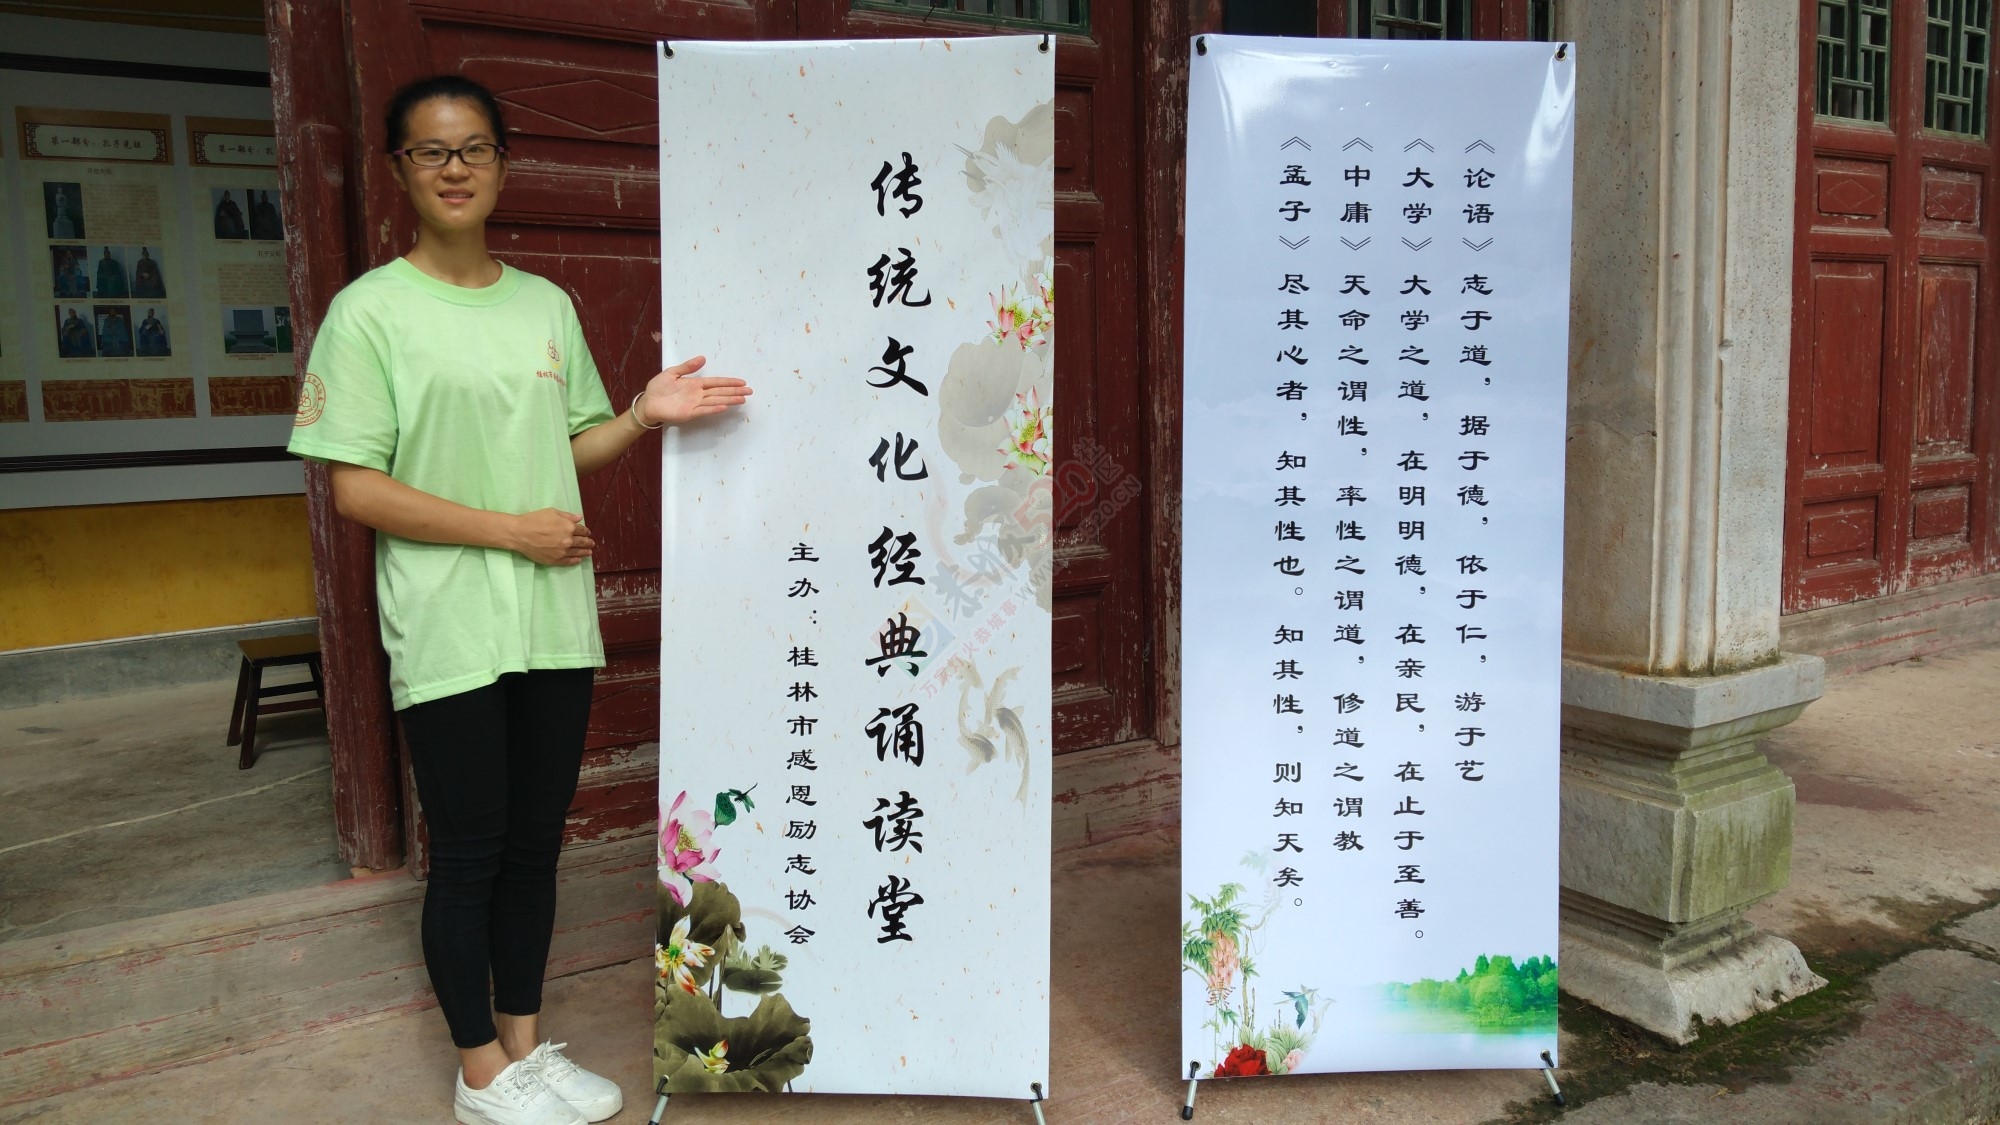 传统文化经典诵读堂
主办：桂林市感恩励志协会
《论语》志于道，据于德，依于仁，游于艺
《大学》大学之道，在明明德，在亲民，在止于至善。
《中庸》天命之谓性，率性之谓道，修道之谓教
《孟子》尽其心者，知其性也。知其性，则知天矣。
第一部分：孔子先祖
第一部分：孔
恭城520社区
万家灯火·恭城事